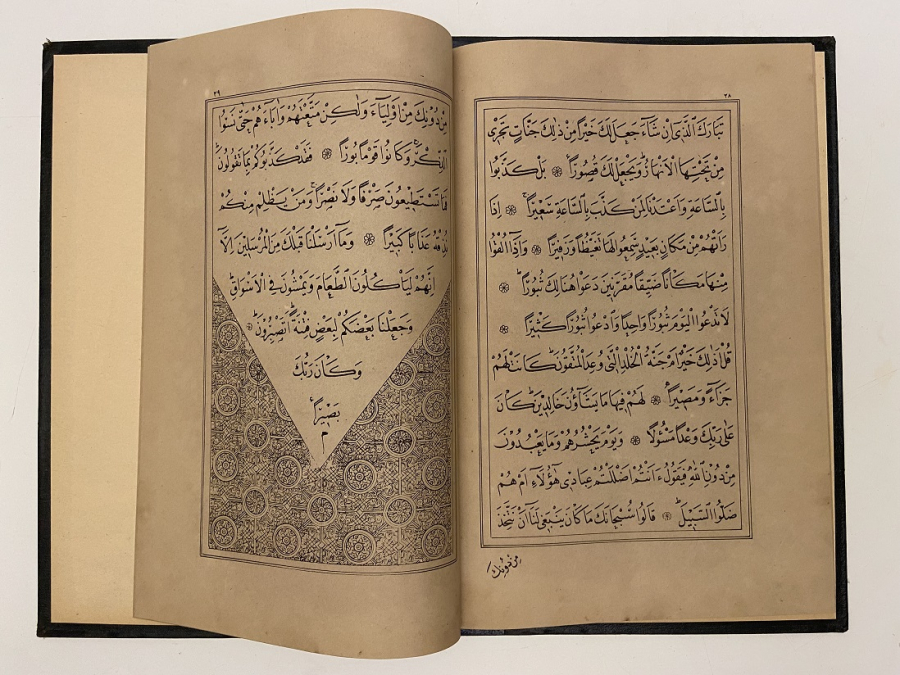 ٢٨
تَبَارَكَ الَّذٖى اِنْ شَٓاءَ جَعَلَ لَكَ خَيْرًا مِنْ ذٰلِكَ جَنَّاتٍ تَجْرٖى
مِنْ تَحْتِهَا الْاَنْهَارُ وَيَجْعَلْ لَكَ قُصُورًا ۞ بَلْ كَذَّبُوا
بِالسَّاعَةِ وَاَعْتَدْنَا لِمَنْ كَذَّبَ بِالسَّاعَةِ سَعٖيرًا ۞ اِذَا
رَاَتْهُمْ مِنْ مَكَانٍ بَعٖيدٍ سَمِعُوا لَهَا تَغَيُّظًا وَزَفٖيرًا ۞ وَاِذَٓا اُلْقُوا
مِنْهَا مَكَانًا ضَيِّقًا مُقَرَّنٖينَ دَعَوْا هُنَالِكَ ثُبُورًا ۞
لَا تَدْعُوا الْيَوْمَ ثُبُورًا وَاحِدًا وَادْعُوا ثُبُورًا كَثٖيرًا ۞
قُلْ اَذٰلِكَ خَيْرٌ اَمْ جَنَّةُ الْخُلْدِ الَّتٖى وُعِدَ الْمُتَّقُونَ كَانَتْ لَهُمْ
جَزَٓاءً وَمَصٖيرًا ۞ لَهُمْ فٖيهَا مَا يَشَٓاؤُنَ خَالِدٖينَ كَانَ
عَلٰى رَبِّكَ وَعْدًا مَسْؤُلًا ۞ وَيَوْمَ يَحْشُرُهُمْ وَمَا يَعْبُدُونَ
مِنْ دُونِ اللّٰهِ فَيَقُولُ ءَاَنْتُمْ اَضْلَلْتُمْ عِبَادٖى هٰٓؤُلَٓاءِ اَمْ هُمْ
ضَلُّوا السَّبٖيلَ ۞ قَالُوا سُبْحَانَكَ مَا كَانَ يَنْبَغٖى لَنَٓا اَنْ نَتَّخِذَ
مِنْ دُونِكَ
٢٩
مِنْ دُونِكَ مِنْ اَوْلِيَٓاءَ وَلٰكِنْ مَتَّعْتَهُمْ وَاٰبَٓاءَهُمْ حَتّٰى نَسُوا
الذِّكْرَ وَكَانُوا قَوْمًا بُورًا ۞ فَقَدْ كَذَّبُوكُمْ بِمَا تَقُولُونَ
فَمَا تَسْتَطٖيعُونَ صَرْفًا وَلَا نَصْرًا وَمَنْ يَظْلِمْ مِنْكُمْ
نُذِقْهُ عَذَابًا كَبٖيرًا ۞ وَمَٓا اَرْسَلْنَا قَبْلَكَ مِنَ الْمُرْسَلٖينَ اِلَّٓا
اِنَّهُمْ لَيَاْكُلُونَ الطَّعَامَ وَيَمْشُونَ فِى الْاَسْوَاقِ
وَجَعَلْنَا بَعْضَكُمْ لِبَعْضٍ فِتْنَةً اَتَصْبِرُونَ
وَكَانَ رَبُّكَ
بَصٖيرًا
م